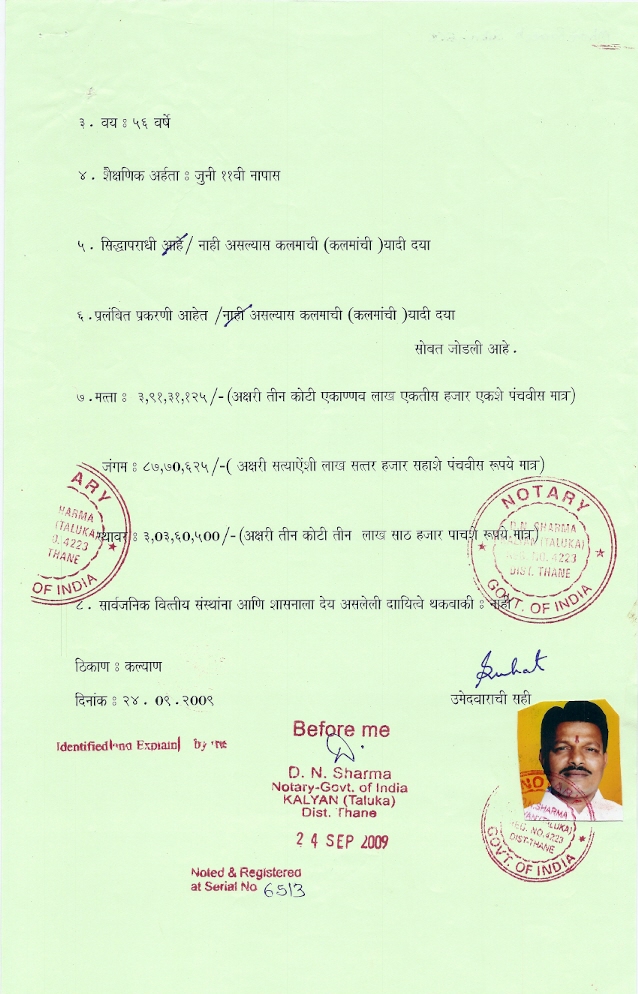 ३. वय : ५६ वर्षे
४. शैक्षणिक अर्हता : जुनी ११वी नापास
५. सिद्धापराधी आहे/ नाही असल्यास कलमाची (कलमांची )यादी दया
६.प्रलंबित प्रकरणी आहेत /नाही असल्यास कलमाची (कलमांची )यादी दया
सोबत जोडली आहे.
७.मत्ता : ३,९१,३१,१२५/-(अक्षरी तीन कोटी एकाण्णव लाख एकतीस हजार एकशे पंचवीस मात्र)
जंगम : ८७,७0,६२५/-( अक्षरी सत्याऐंशी लाख सत्तर हजार सहाशे पंचवीस रूपये मात्र)
स्थावर : ३,0३,६0,५00/-(अक्षरी तीन कोटी तीन लाख साठ हजार पाचशे रूपये मात्र)
ARY
HARMA
(TALUKA)
O. 4223
THANE
OF INDIA
NOTARY
D.N. SHARMA
(TALUKA)
REG. NO. 4223
DIST. THANE
GOVT. OF INDIA
८. सार्वजनिक वित्तीय संस्थांना आणि शासनाला देय असलेली दायित्वे थकबाकी : नाही
ठिकाण : कल्याण
दिनांक : २४. 0९.२00९
उमेदवाराची सही
Identified and Explain by me
Before me
D. N. Sharma
Notary-Govt. of India
KALYAN (Taluka)
Dist. Thane
24 SEP 2009
Noted & Registered
at Serial No 6513
NO
SHARMA
(TALUKA)
REG. NO. 4223
DIST-THANE
GOVT. OF INDIA